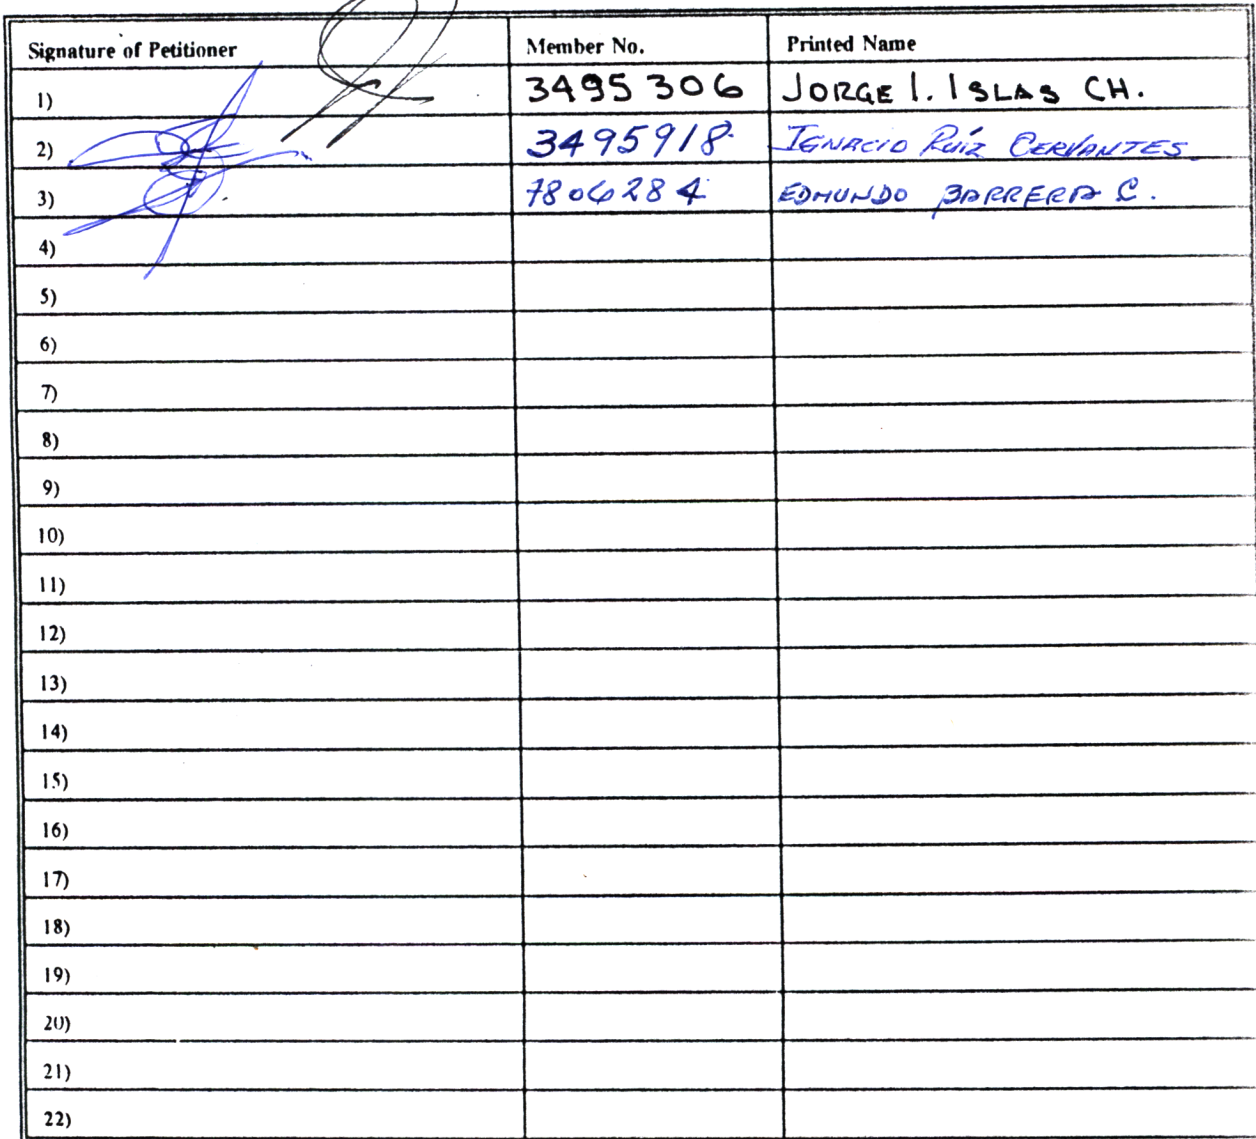 Signature of Petitioner Member No. Printed Name
1) 3495306 JORGE I. ISLAS CH.
2) 3495918 IGNACIO RUÍZ CERVANTES
3) 7806284 EDMUNDO BARRERA C.
4)
5)
6)
7)
8)
9)
10)
11)
12)
13)
14)
15)
16)
17)
18)
19)
20)
21)
22)